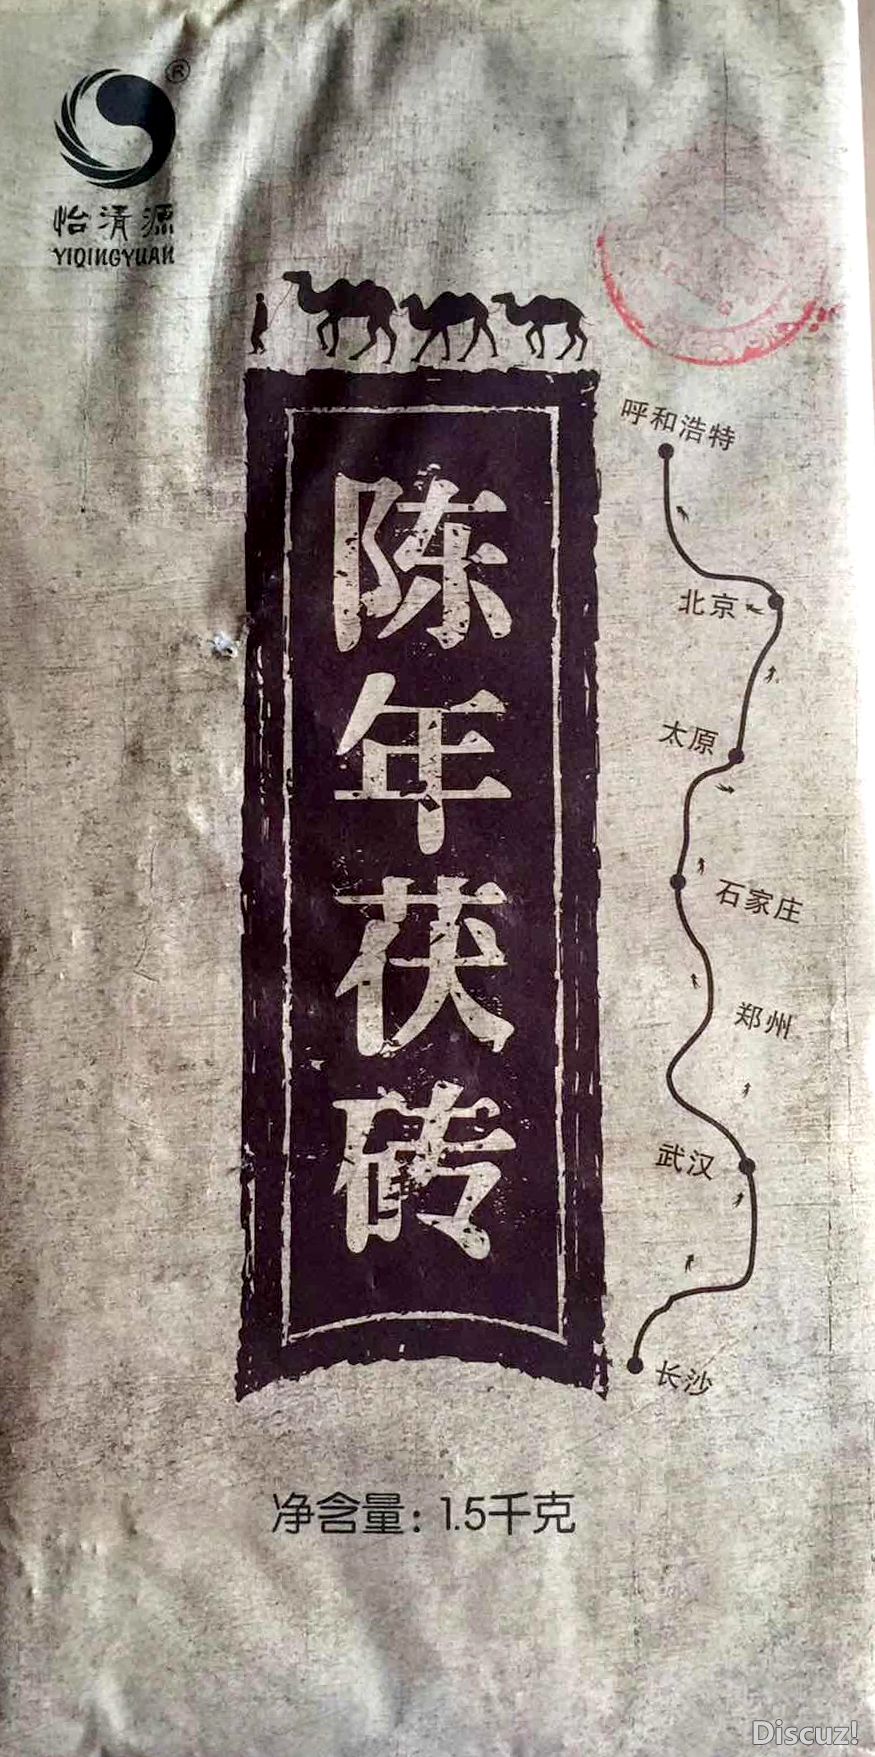 ®
怡清源
YIQINGYUAN
陈年茯砖
呼和浩特
北京
太原
石家庄
郑州
武汉
长沙
净含量：1.5千克
Discuz!